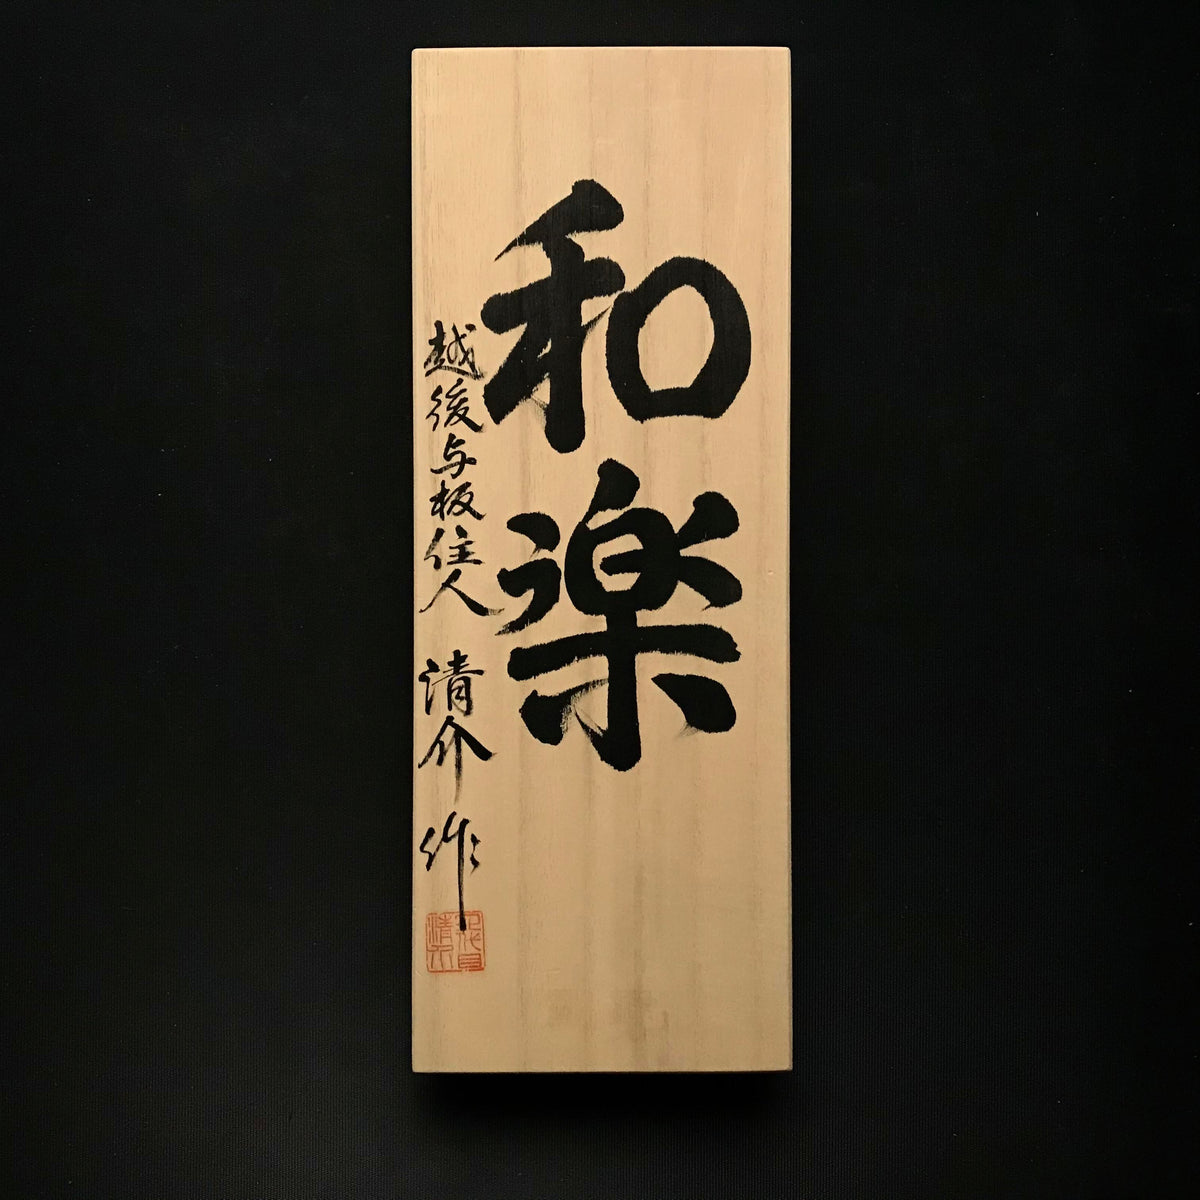 和楽
越後与板住人 清介 作